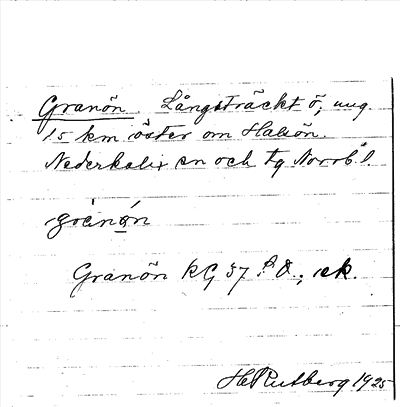 Granön. Långsträckt ö, ung.
15 km öster om Halsön.
Nederkalix sn och tg Norrb. l.
grànón
Granön RG 37 ; ek.
H Rutberg 1925